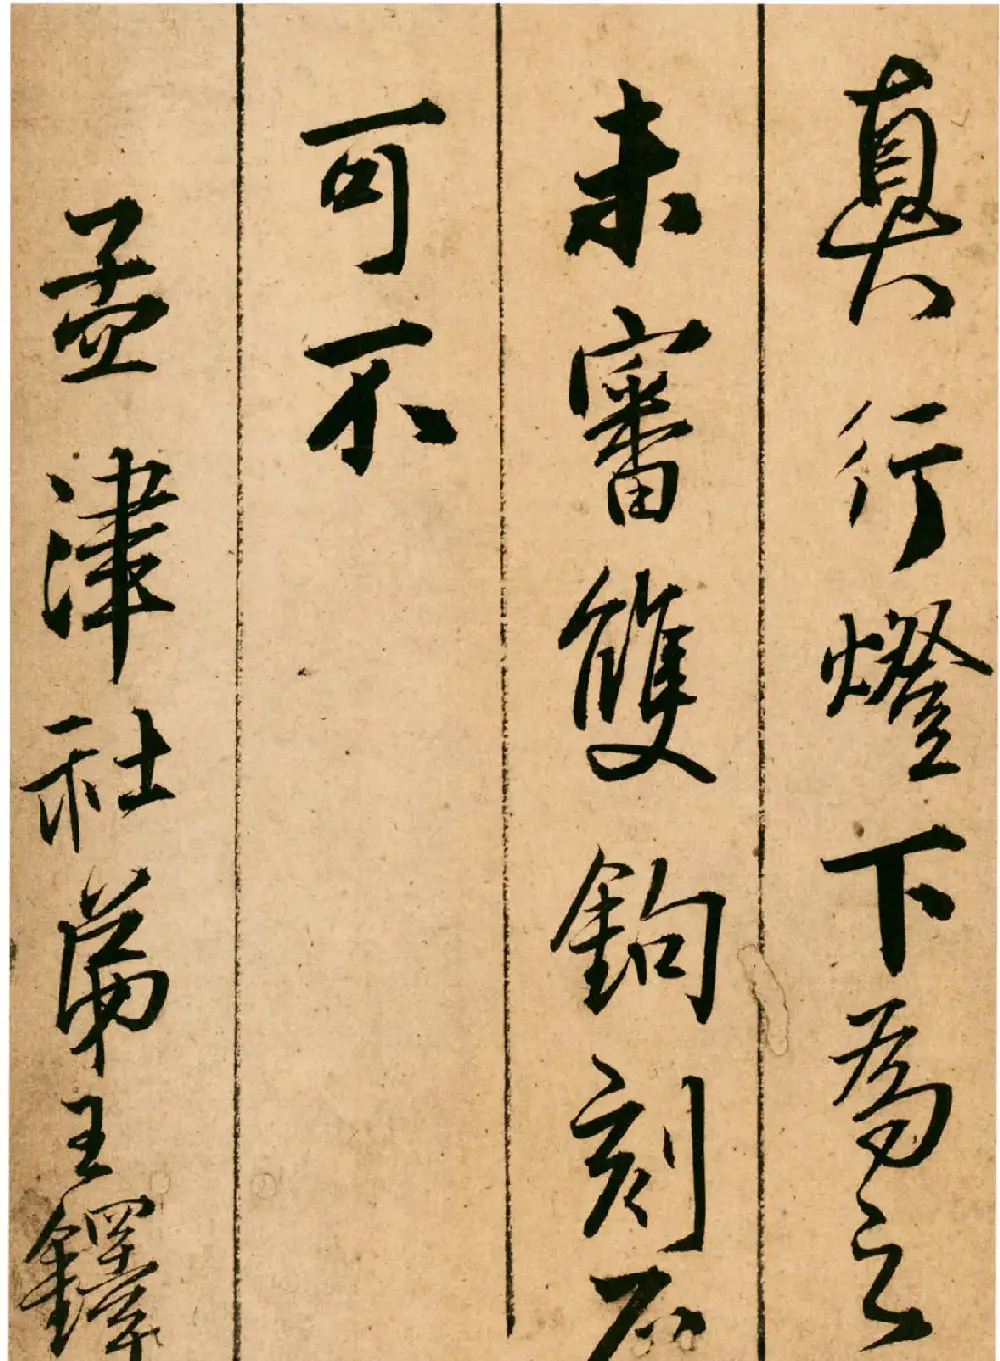 真行燈下為之
未審雙鉤刻石
可不
孟津社弟王鐸